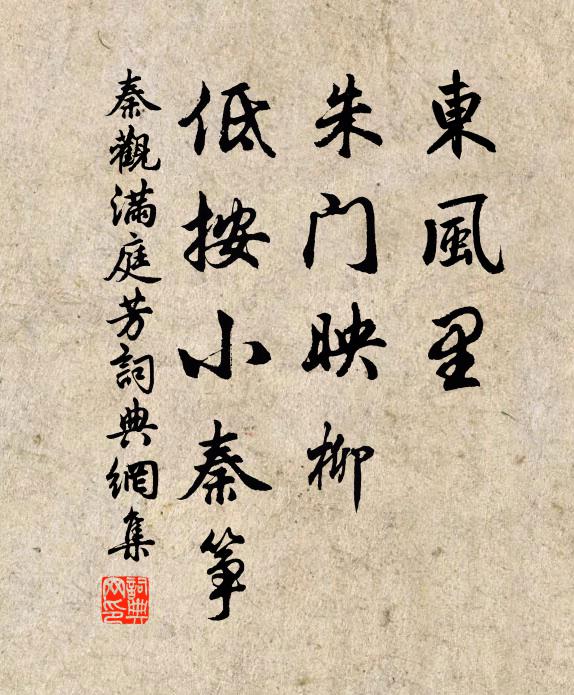 東風里
朱门映柳
低按小秦筝
秦觀滿庭芳詞典網集
詞典网印